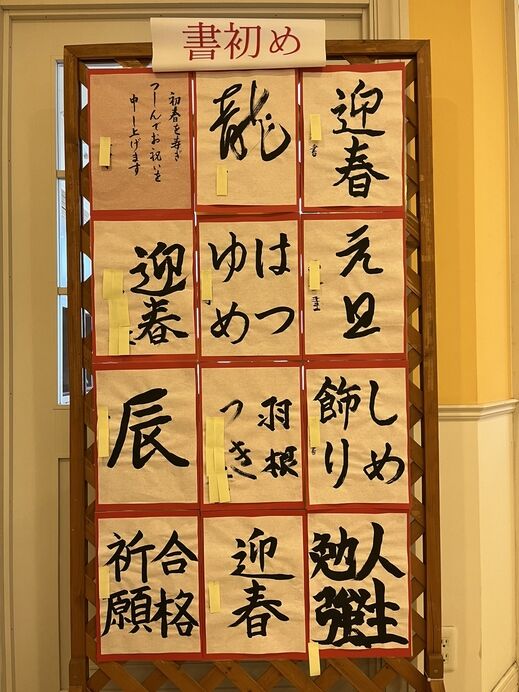 書初め
迎春
龍
初春を寿ぎ
つゝしんでお祝いを
申し上げます
元旦
はつ
ゆめ
迎春
しめ
飾り
羽根
つき
辰
人生
勉強
迎春
合格
祈願